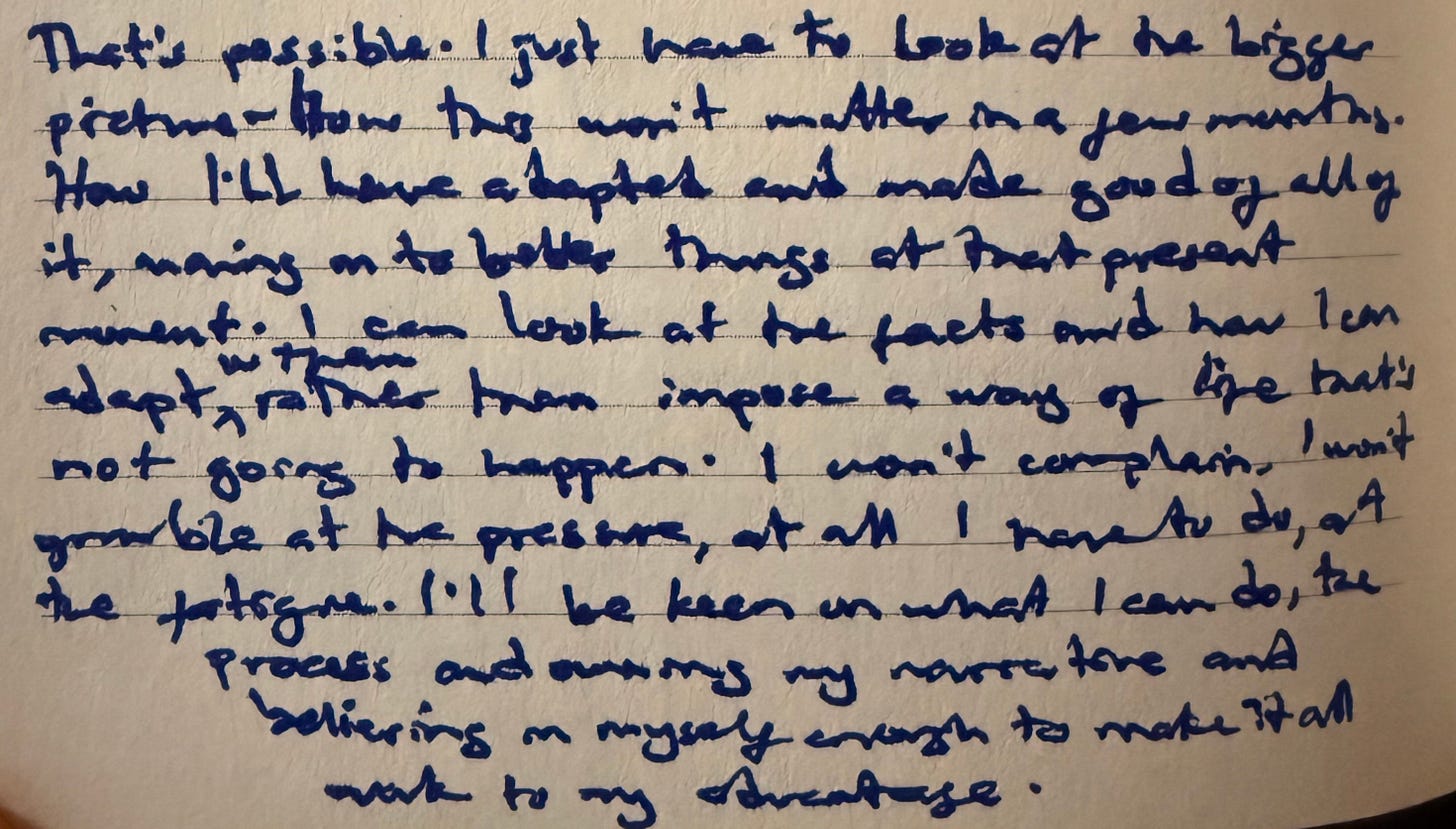 That's possible. I just have to look at the bigger
picture - How this won't matter in a few months.
How I'll have adapted and made good of all of
it, moving on to better things at that present
moment. I can look at the facts and how I can
w them
adapt, rather than impose a way of life that's
not going to happen. I won't complain. I won't
grumble at the pressure, at all I have to do, at
the fatigue. I'll be keen on what I can do, the
process and owning my narrative and
believing in myself enough to make it all
work to my advantage.